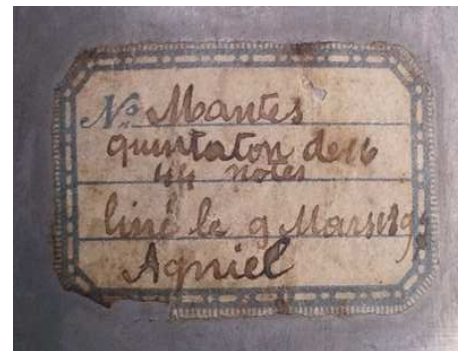 No Mantes
quintaton de 16
44 notes
livré le 9 Mars 189
Agniel